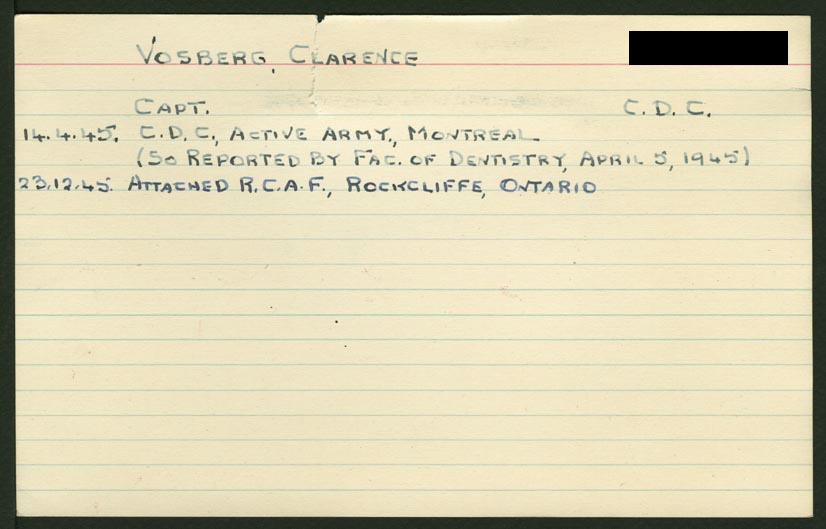 VOSBERG, CLARENCE
CAPT. C.D.C.
14.4.45. C.D.C., ACTIVE ARMY., MONTREAL
(SO REPORTED BY FAC. OF DENTISTRY, APRIL 5, 1945)
23.12.45. ATTACHED R.C.A.F., ROCKCLIFFE, ONTARIO